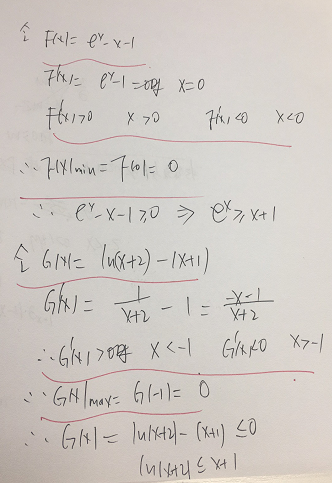 令 F(x)= eˣ-x-1
F'(x)= eˣ-1=0时 x=0
F'(x)>0 x>0 F'(x)<0 x<0
∴ F(x)min=F(0)=0
∴ eˣ-x-1≥0 ⇒ eˣ≥x+1
令 G(x)= ln(x+2)-(x+1)
G'(x)= 1/(x+2) - 1 = (-x-1)/(x+2)
∴ G'(x)>0时 x<-1 G'(x)<0 x>-1
∴ G(x)max= G(-1)= 0
∴ G(x)= ln(x+2)-(x+1)≤0
ln(x+2)≤x+1